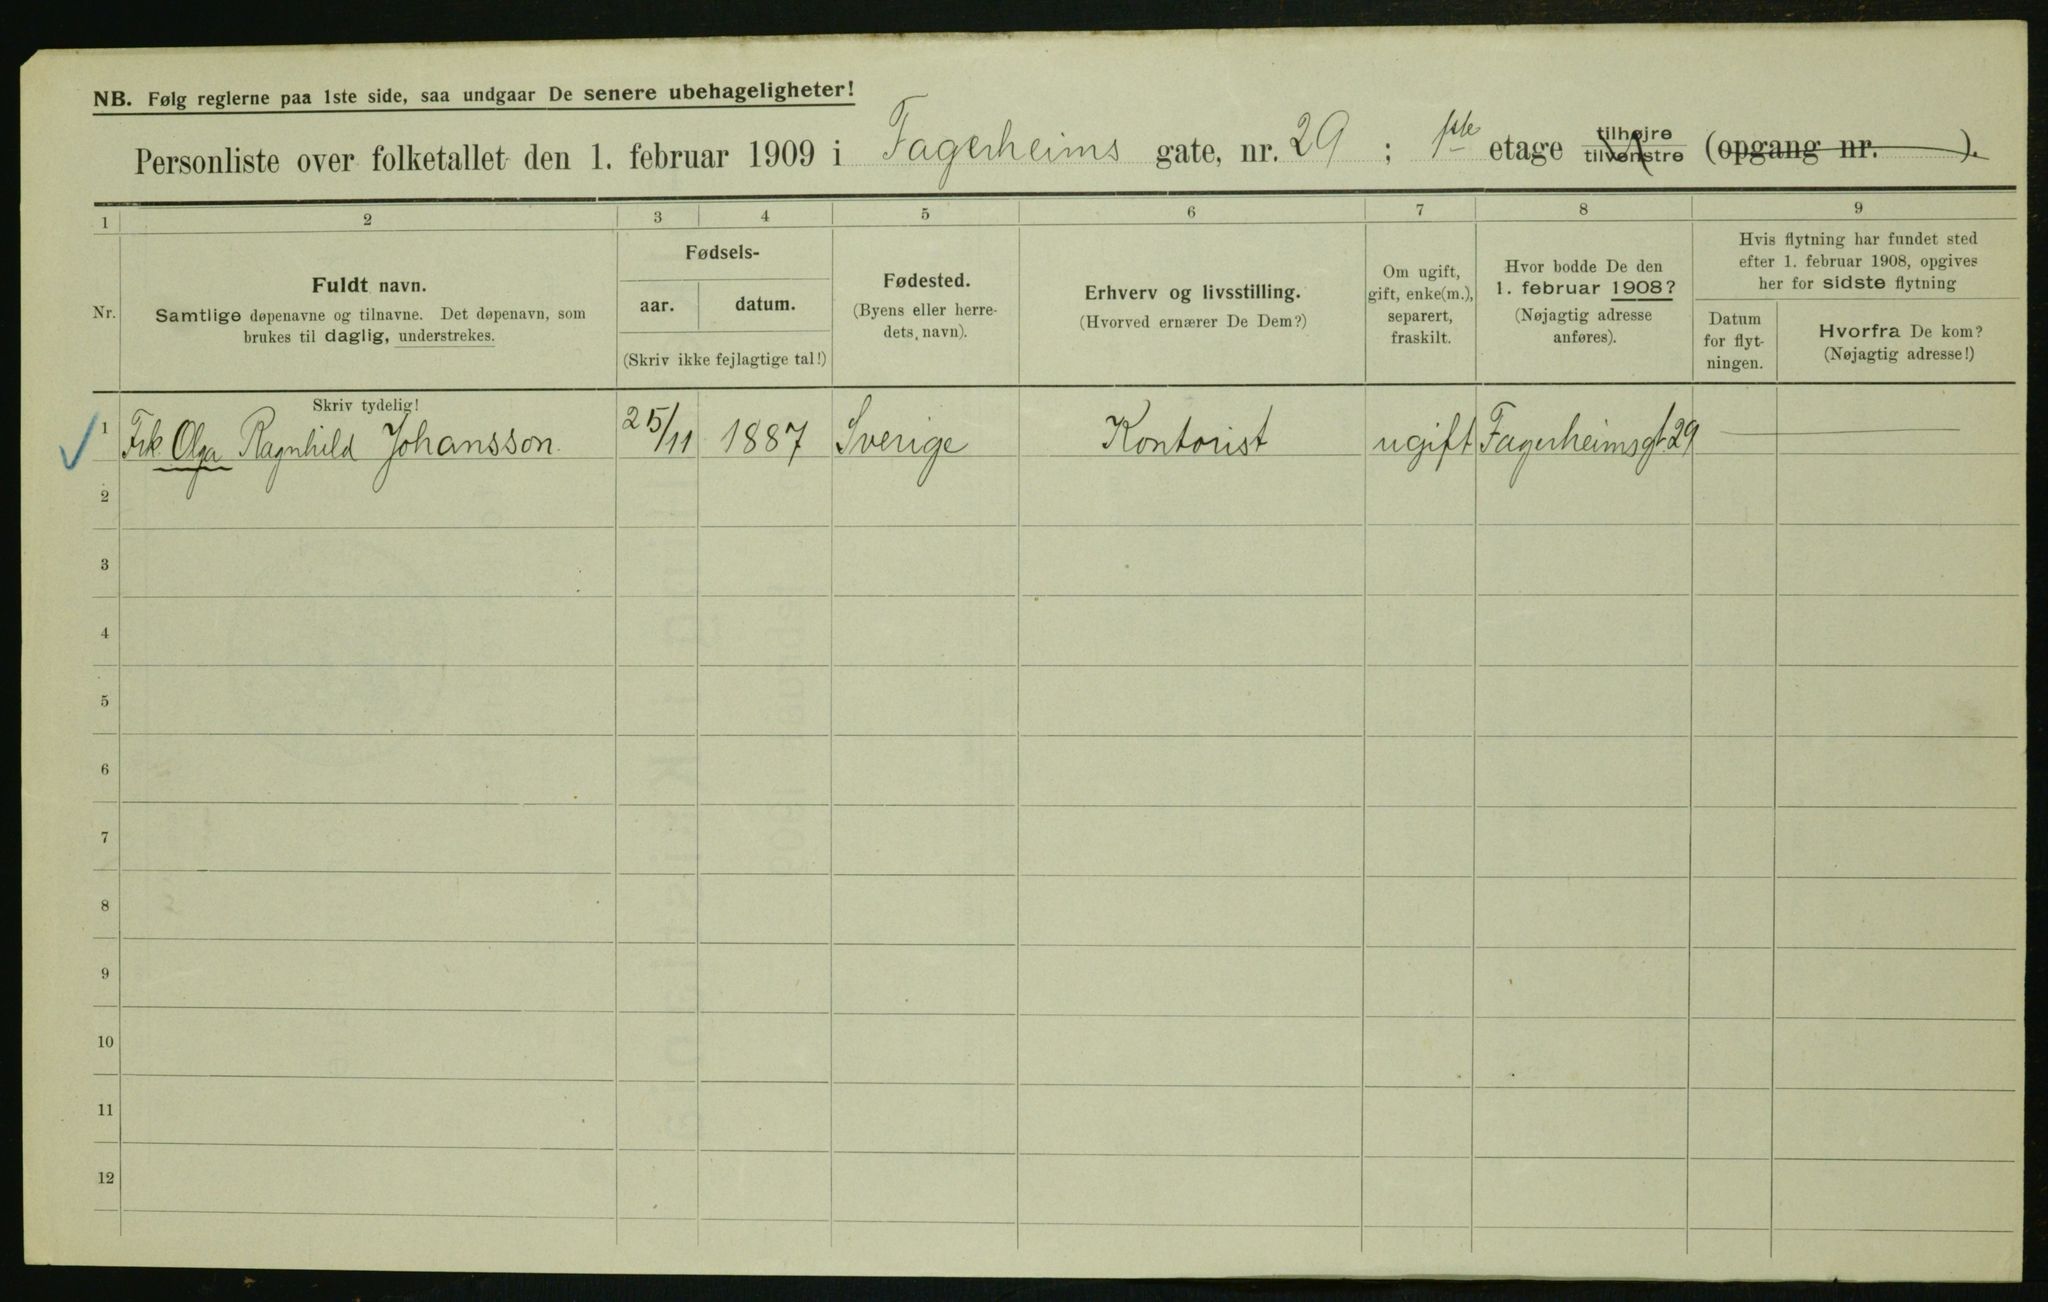 NB. Følg reglerne paa 1ste side, saa undgaar De senere ubehageligheter!
Personliste over folketallet den 1. februar 1909 i Fagerheims gate, nr. 29 ; 1ste etage tilhøjre tilvenstre (opgang nr. ).
1 2 3 4 5 6 7 8 9
Nr.
Fuldt navn.
Samtlige døpenavne og tilnavne. Det døpenavn, som
brukes til daglig, understrekes.
Fødsels-
aar. datum.
(Skriv ikke fejlagtige tal!)
Fødested.
(Byens eller herre-
dets, navn).
Erhverv og livsstilling.
(Hvorved ernærer De Dem?)
Om ugift,
gift, enke(m.),
separert,
fraskilt.
Hvor bodde De den
1. februar 1908?
(Nøjagtig adresse
anføres).
Hvis flytning har fundet sted
efter 1. februar 1908, opgives
her for sidste flytning
Datum
for flyt-
ningen.
Hvorfra De kom?
(Nøjagtig adresse!)
Skriv tydelig!
1 Frk. Olga Ragnhild Johansson. 25/11 1887 Sverige Kontorist ugift Fagerheimsgt 29
2
3
4
5
6
7
8
9
10
11
12